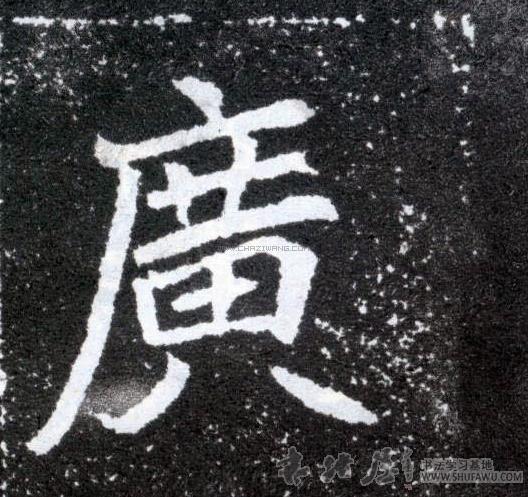 廣
WWW.CHAZIWANG.COM
书法学习基地
WWW.SHUFAWU.COM